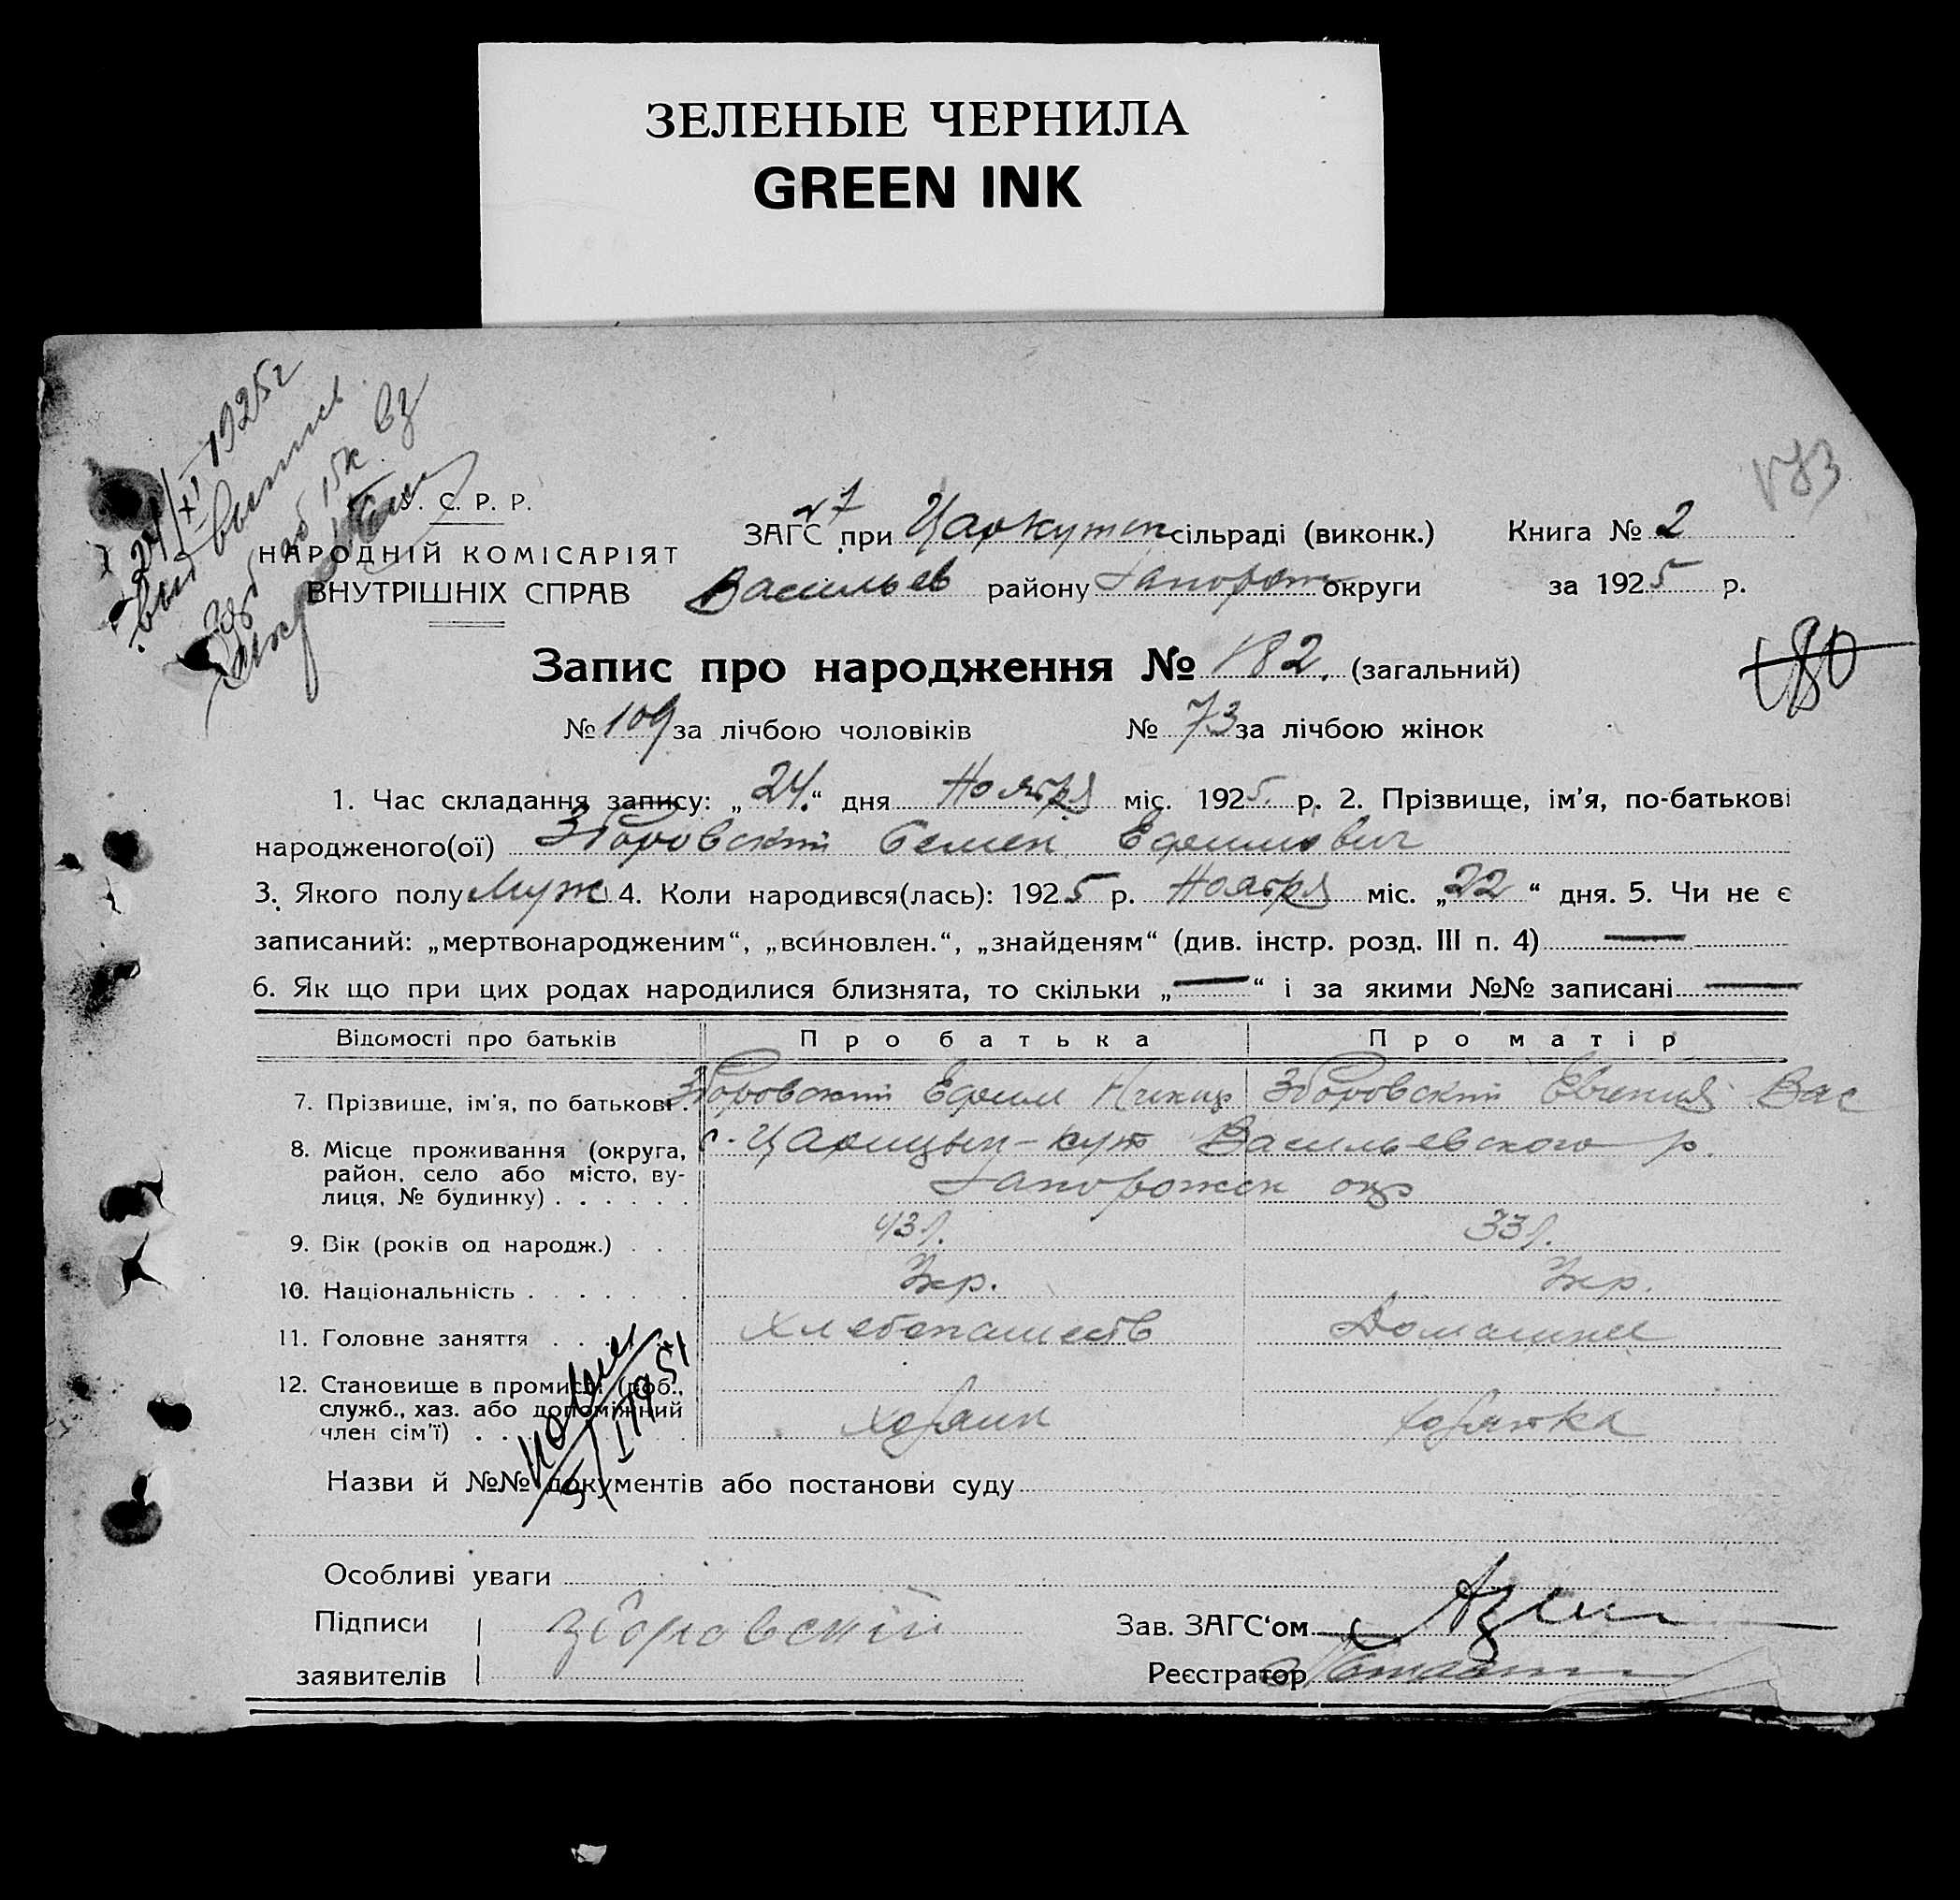 ЗЕЛЕНЫЕ ЧЕРНИЛА
GREEN INK
24/XI 1925г
выпись
15к
183
С. Р. Р.
НАРОДНІЙ КОМІСАРІЯТ
ВНУТРІШНІХ СПРАВ
ЗАГС при Царкутсп сільраді (виконк.) Книга № 2
Васильев району Запорож округи за 1925 р.
180
Запис про народження № 182. (загальний)
№ 109 за лічбою чоловіків № 73 за лічбою жінок
1. Час складання запису: „24.“ дня Ноября міс. 1925. р. 2. Прізвище, ім’я, по-батькові
народженого(ої) Зборовский Семен Ефимович
3. Якого полу Муж 4. Коли народився(лась): 1925 р. Ноября міс. „22“ дня. 5. Чи не є
записаний: „мертвонародженим“, „всиновлен.“, „знайденям“ (див. інстр. розд. III п. 4) —
6. Як що при цих родах народилися близнята, то скільки „—“ і за якими №№ записані —
Відомості про батьків Про батька Про матір
7. Прізвище, ім’я, по батькові. Зборовский Ефим Никиф Зборовский Евгения Вас
8. Місце проживання (округа, с. Царицын-кут Васильевского р.
район, село або місто, ву-
лиця, № будинку) . . . . . Запорожск окр
9. Вік (років од народж.) . . 43 л. 33 л.
10. Національність . . . . . . . Укр. Укр.
11. Головне заняття . . . Хлебопашеств Домашнее
12. Становище в промислі (роб.,
служб., хаз. або допоміжний
член сім’ї) . . Хозяин Хозяйка
Назви й №№ документів або постанови суду
Особливі уваги
Підписи Зборовский Зав. ЗАГС‘ом
заявителів Реєстратор